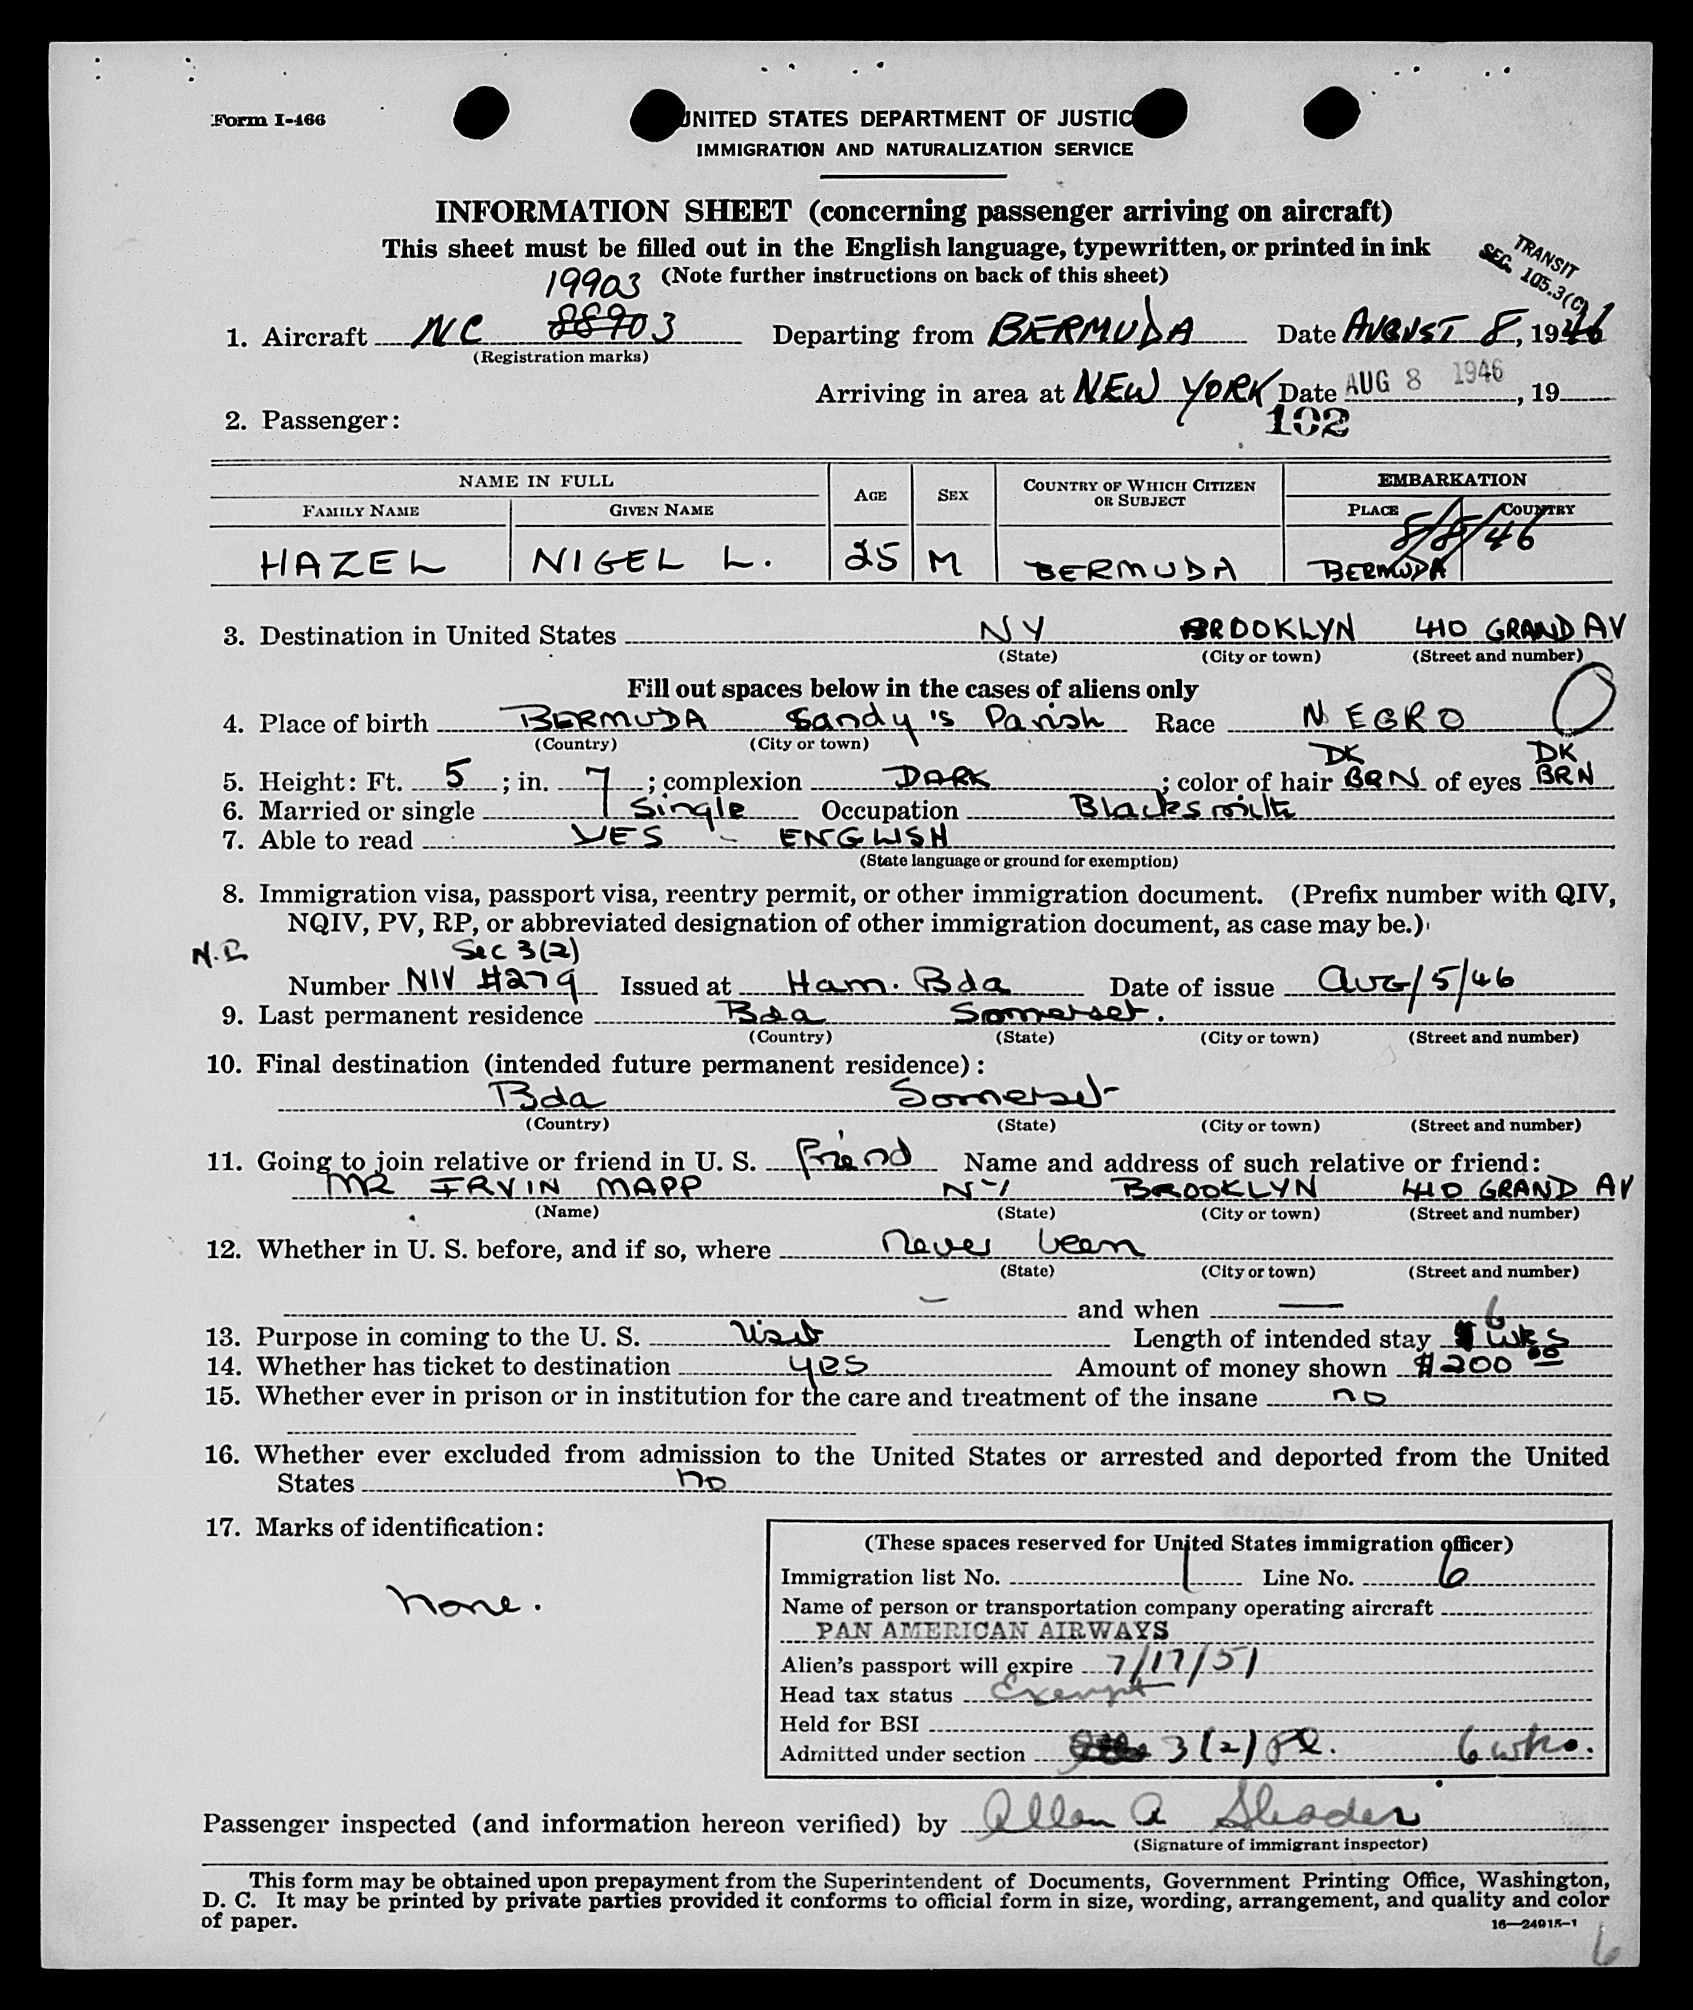 Form I-466
UNITED STATES DEPARTMENT OF JUSTIC
IMMIGRATION AND NATURALIZATION SERVICE
INFORMATION SHEET (concerning passenger arriving on aircraft)
This sheet must be filled out in the English language, typewritten, or printed in ink
(Note further instructions on back of this sheet)
TRANSIT
SEC. 105.3(C)
19903
1. Aircraft NC 88903 Departing from BERMUDA Date AUGUST 8, 1946
(Registration marks)
Arriving in area at NEW YORK Date AUG 8 1946, 19
102
2. Passenger:
NAME IN FULL AGE SEX COUNTRY OF WHICH CITIZEN OR SUBJECT EMBARKATION
FAMILY NAME GIVEN NAME PLACE COUNTRY
8/8/46
HAZEL NIGEL L. 25 M BERMUDA BERMUDA
3. Destination in United States NY BROOKLYN 410 GRAND AV
(State) (City or town) (Street and number)
Fill out spaces below in the cases of aliens only
4. Place of birth BERMUDA Sandy's Parish Race NEGRO
(Country) (City or town)
DK DK
5. Height: Ft. 5; in. 7; complexion DARK; color of hair BRN of eyes BRN
6. Married or single Single Occupation Blacksmith
7. Able to read YES - ENGLISH
(State language or ground for exemption)
8. Immigration visa, passport visa, reentry permit, or other immigration document. (Prefix number with QIV,
NQIV, PV, RP, or abbreviated designation of other immigration document, as case may be.)
Sec 3(2)
Number NIV #279 Issued at Ham. Bda Date of issue Aug/5/46
9. Last permanent residence Bda Somerset.
(Country) (State) (City or town) (Street and number)
10. Final destination (intended future permanent residence):
Bda Somerset
(Country) (State) (City or town) (Street and number)
11. Going to join relative or friend in U. S. Friend Name and address of such relative or friend:
MR IRVIN MAPP NY BROOKLYN 410 GRAND AV
(Name) (State) (City or town) (Street and number)
12. Whether in U. S. before, and if so, where never been
(State) (City or town) (Street and number)
- and when —
13. Purpose in coming to the U. S. Visit Length of intended stay 6 wks
14. Whether has ticket to destination yes Amount of money shown $200 00
15. Whether ever in prison or in institution for the care and treatment of the insane no
16. Whether ever excluded from admission to the United States or arrested and deported from the United
States no
17. Marks of identification:
none.
(These spaces reserved for United States immigration officer)
Immigration list No. 1 Line No. 6
Name of person or transportation company operating aircraft
PAN AMERICAN AIRWAYS
Alien's passport will expire 7/17/51
Head tax status Exempt
Held for BSI
Admitted under section 3(2) 6 wks.
Passenger inspected (and information hereon verified) by Allen A
(Signature of immigrant inspector)
This form may be obtained upon prepayment from the Superintendent of Documents, Government Printing Office, Washington,
D. C. It may be printed by private parties provided it conforms to official form in size, wording, arrangement, and quality and color
of paper.
16—24915-1
6